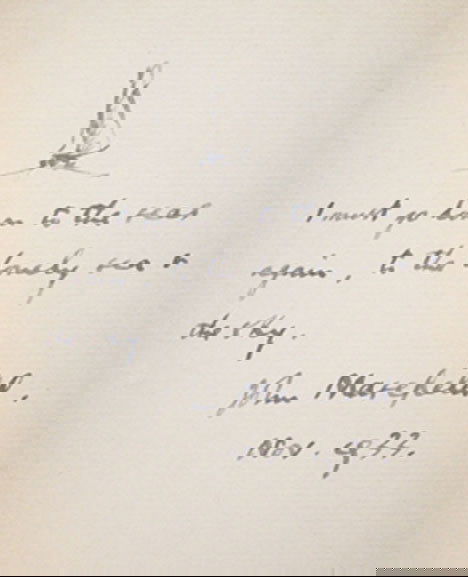 to the seas I must go
lonely sea & again, to the
the sky.
John Masefiel
Nov.